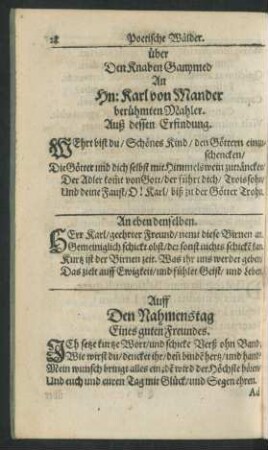 28 Poetische Wälder.
über
Den Knaben Ganymed
An
Hn: Karl von Mander
berühmten Mahler.
Auß dessen Erfindung.
WEhrt bist du / Schönes Kind / den Göttern einzu-
schencken /
Die Götter und dich selbst mit Himmelswein zuträncken
Der Adler kömt von Gott / der führt dich / Trois sohn /
Und deine Faust / O! Karl / biß zu der Götter Trohn.
An eben denselben.
HErr Karl / geehrter Freund / nemt diese Birnen an.
Gemeiniglich schickt obst / der sonst nichts schicken kan.
Kurtz ist der Birnen zeit. Was ihr uns werdet geben
Das zielt auff Ewigkeit / und fühlet Geist / und Leben.
Auff
Den Nahmenstag
Eines guten Freundes.
ICh setze kurtze Wort / und schicke Verß ohn Band.
Wie wirst du / dencket ihr / den bindē hertz / und hand?
Mein wunsch bringt alles ein / dē wird der Höchste hören
Und euch und euren Tag mit Glück / und Segen ehren.